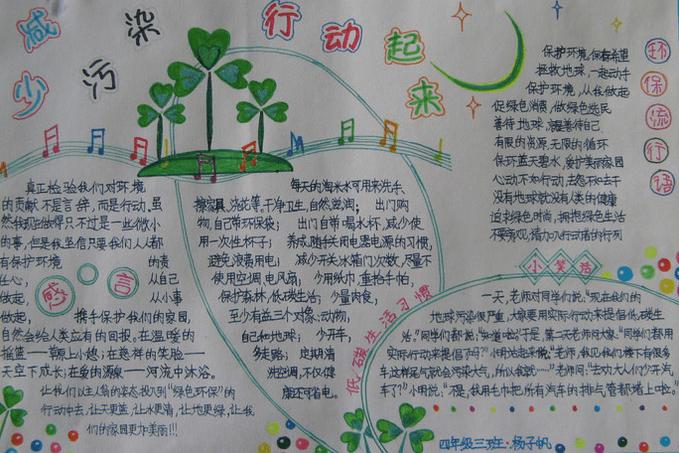 减少污染
行动起来
环保流行语
保护环境,保存希望
拯救地球,一起动手
保护环境,从我做起
促绿色消费,做绿色选民
善待地球,就是善待自己
有限的资源,无限的循环
保环蓝天碧水,爱护美丽家园
心动不如行动,去怨不如去干
没有地球就没有人类的健康
追求绿色时尚,拥抱绿色生活
真正检验我们对环境
的贡献不是言辞,而是行动。虽
然我现在做得只不过是一些微小
的事,但是我坚信只要我们人人都
有保护环境的责
任心,从自己
做起,从小事
做起,携手保护我们的家园,
自然会给人类应有的回报。在温暖的
摇篮——草原上小憩;在慈祥的笑脸——
天空下成长;在母的源泉——河流中沐浴。
让我们以主人翁的姿态投入到“绿色环保”的
行动中去,让天更蓝,让水更清,让地更绿,让我
们的家园更加美丽!!!
感言
每天的淘米水可用来洗手、
擦家具、浇花等。干净卫生,自然滋润;出门购
物,自己带环保袋;出门自带喝水杯,减少使
用一次性杯子;养成随手关用电器电源的习惯,
避免浪费用电;减少开关冰箱门次数,尽量不
使用空调、电风扇;少用纸巾,重拾手帕,
保护森林,低碳生活;少量肉食,
至少有益三个对象:动物,
自己和地球;少开车,
多走路;定期清
洗空调,不仅健
康还可省电。
低碳生活习惯
小笑话
一天,老师对同学们说:“现在我们的
地球污染很严重,大家要用实际行动来提倡低碳生
活。”同学们都说:“知道啦!”于是,第二天老师问大家:“同学们都用
实际行动来提倡了吗?”小明站起来说:“老师,我见我们楼下有很多
车这样尾气就会污染大气,所以我就……”老师问:“主劝大人们少开汽
车了?”小明说:“不是,我用毛巾把所有汽车的排气管都堵上啦。”
四年级三班:杨子帆